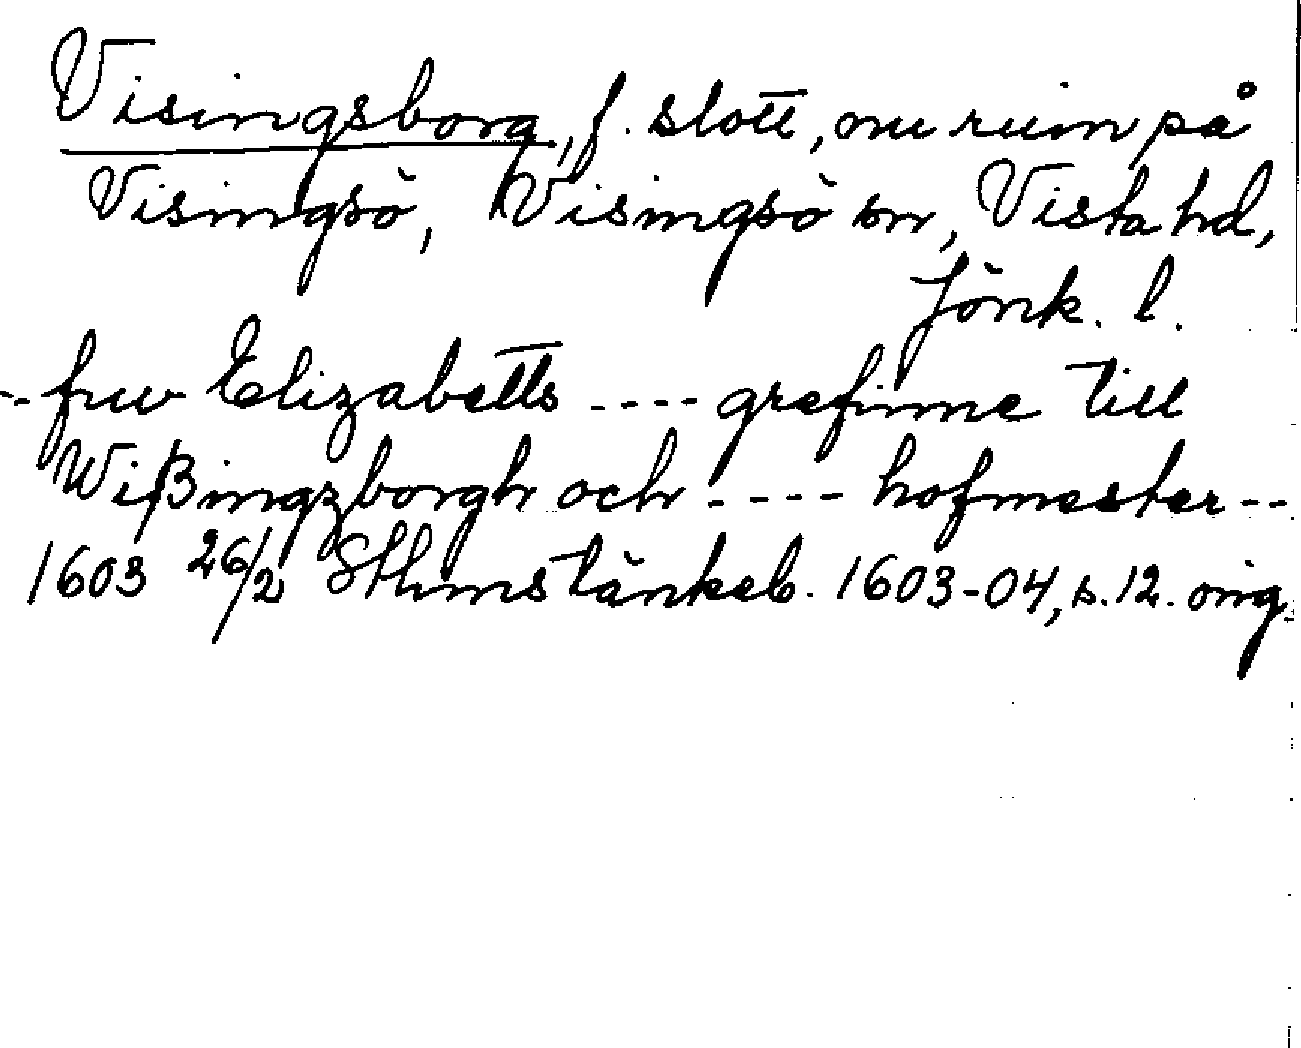 Visingsborg, f. slott, nu ruin på
Visingsö, Visingsö sn, Vista hd,
Jönk. l.
-- fruv Elizabetts ---- grefinne till
Wißingzborgh och ---- hofmester --
1603 26/2 Sthms tänkeb. 1603-04, s. 12. orig.